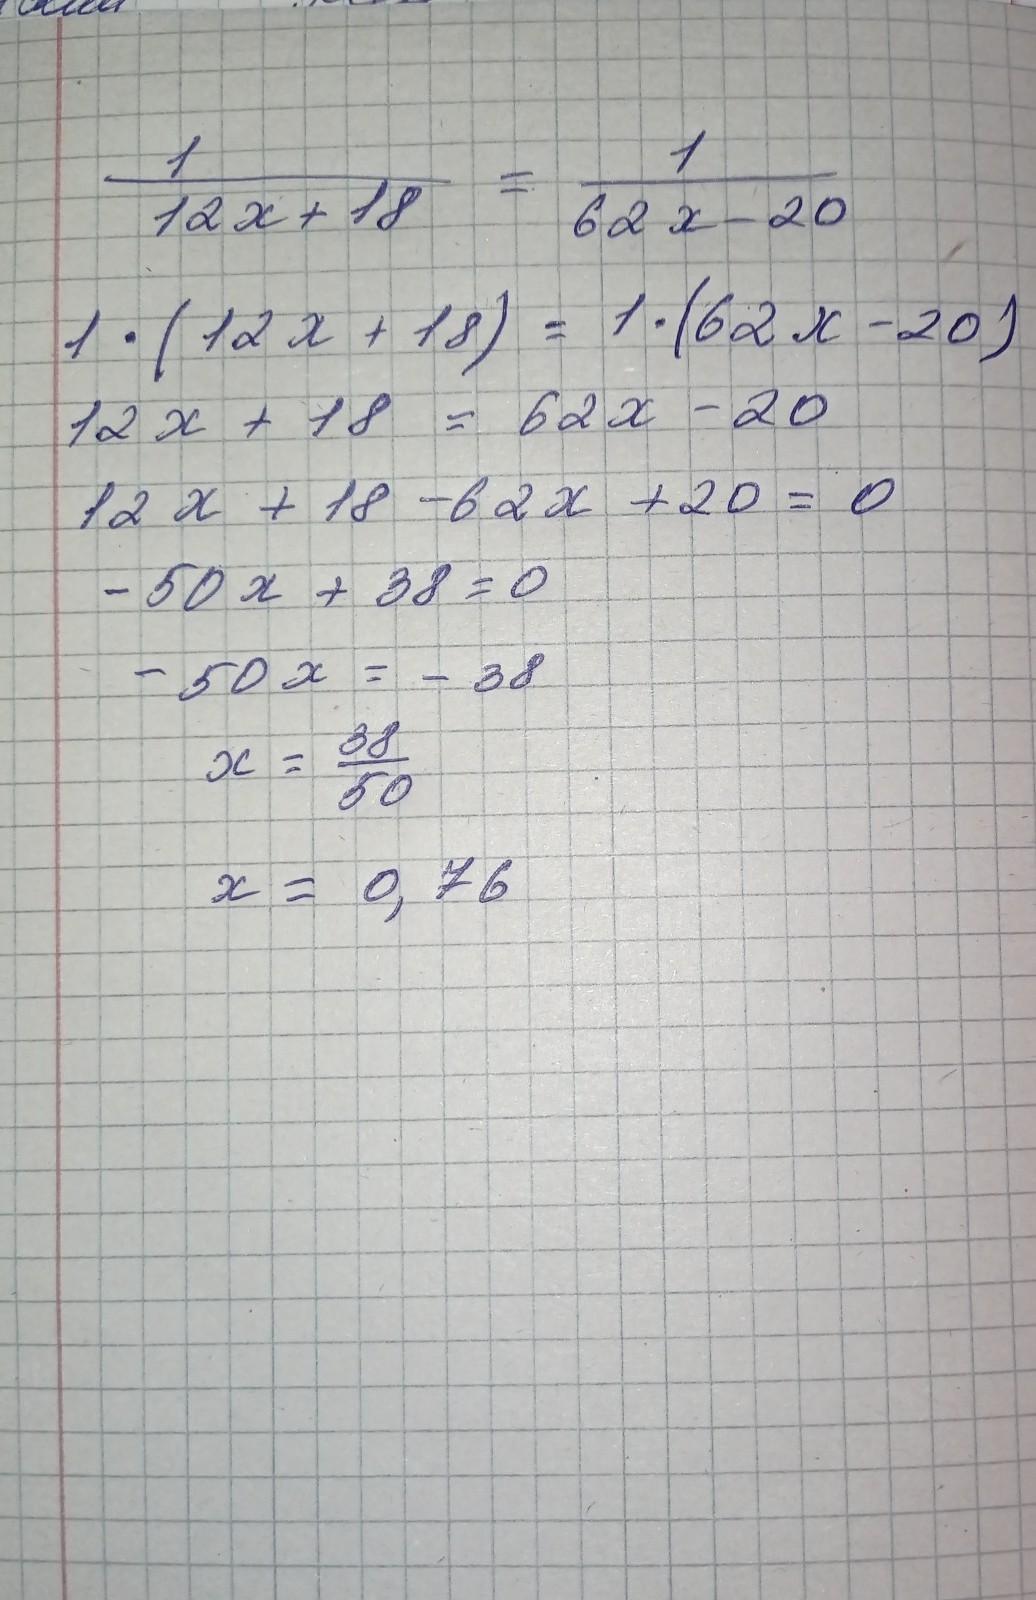 1/(12x + 18) = 1/(62x - 20)
1·(12x + 18) = 1·(62x - 20)
12x + 18 = 62x - 20
12x + 18 - 62x + 20 = 0
- 50x + 38 = 0
- 50x = - 38
x = 38/50
x = 0,76